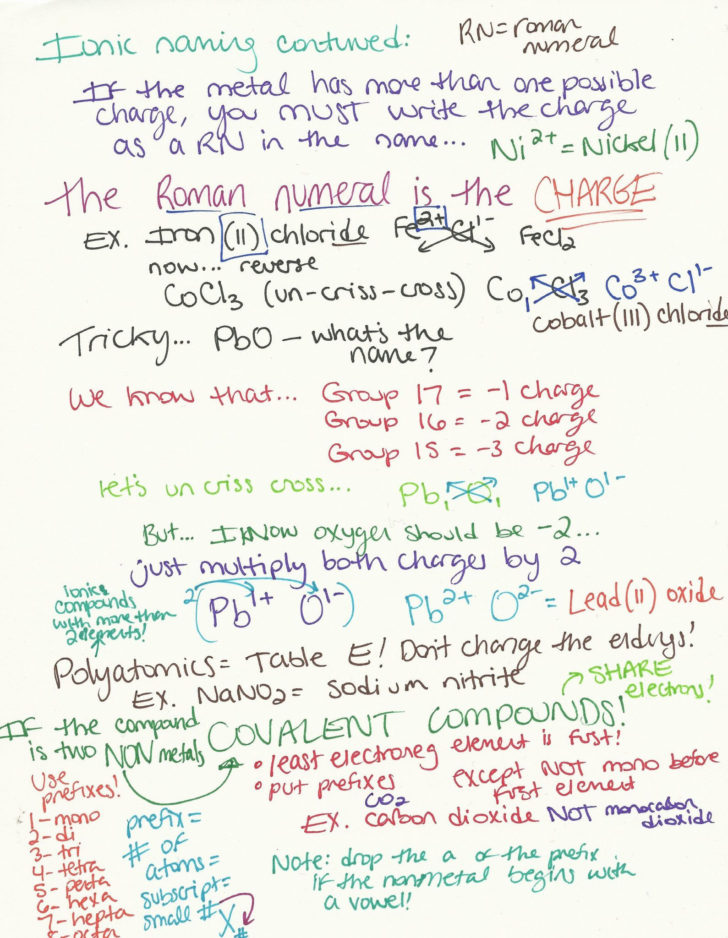 Ionic naming continued:
RN = roman
numeral
If the metal has more than one possible
charge, you must write the charge
as a RN in the name...
Ni²⁺ = Nickel (II)
The Roman numeral is the CHARGE
EX. Iron (II) chloride Fe²⁺ Cl¹⁻ FeCl₂
now... reverse
CoCl₃ (un-criss-cross) Co₁ Cl₃ Co³⁺ Cl¹⁻
cobalt (III) chloride
Tricky... PbO – what's the
name?
We know that... Group 17 = -1 charge
Group 16 = -2 charge
Group 15 = -3 charge
Let's un criss cross... Pb₁ O₁ Pb¹⁺ O¹⁻
But... I know oxygen should be -2...
just multiply both charges by 2
2(Pb¹⁺ O¹⁻) Pb²⁺ O²⁻ = Lead (II) oxide
ionic
compounds
with more than
2 elements!
Polyatomics = Table E! Don't change the endings!
EX. NaNO₂ = sodium nitrite
SHARE
electrons!
If the compound
is two NON metals
COVALENT COMPOUNDS!
• least electroneg element is first!
• put prefixes except NOT mono before
first element
CO₂
EX. carbon dioxide NOT monocarbon
dioxide
Use
prefixes!
1 - mono
2 - di
3 - tri
4 - tetra
5 - penta
6 - hexa
7 - hepta
8 - octa
prefix =
# of
atoms =
subscript =
small #
X#
Note: drop the a of the prefix
if the nonmetal begins with
a vowel!